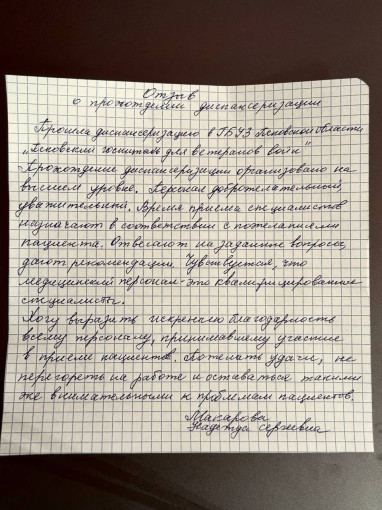 Отзыв
о прохождении диспансеризации
Прошла диспансеризацию в ГБУЗ Псковской области
„Псковский госпиталь для ветеранов войн"
Прохождение диспансеризации организовано на
высшем уровне. Персонал доброжелательный,
уважительный. Время приема специалистов
назначают в соответствии с пожеланиями
пациента. Отвечают на заданные вопросы,
дают рекомендации. Чувствуется, что
медицинский персонал - это квалифицированные
специалисты.
Хочу выразить искреннюю благодарность
всему персоналу, принимавшему участие
в приеме пациентов. Пожелать удачи, не
перегореть на работе и оставаться такими
же внимательными к проблемам пациентов.
Макарова
Надежда Сергеевна